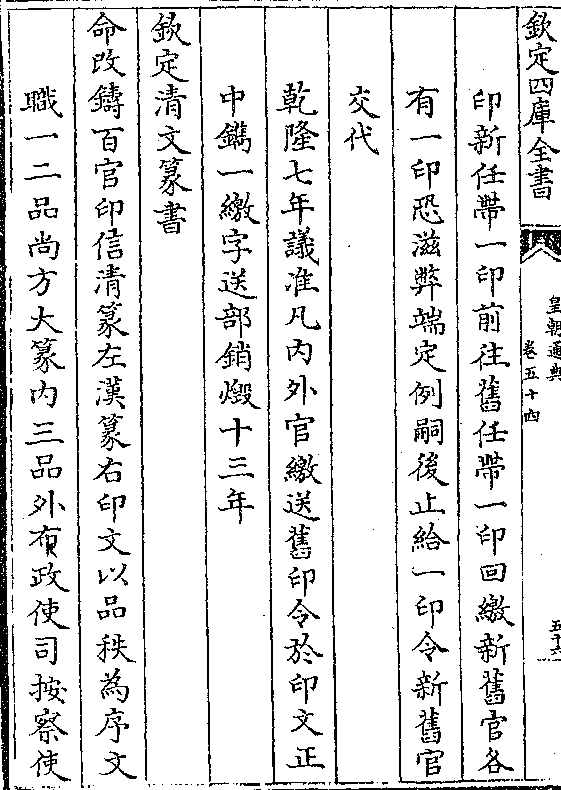 欽定四庫全書
皇朝通典
卷五十四
印新任帶一印前往舊任帶一印回繳新舊官各
有一印恐滋弊端定例嗣後止給一印令新舊官
交代
乾隆七年議准凡內外官繳送舊印令於印文正
中鐫一繳字送部銷燬十三年
欽定清文篆書
命改鑄百官印信清篆左漢篆右印文以品秩為序文
職一二品尚方大篆內三品外布政使司按察使